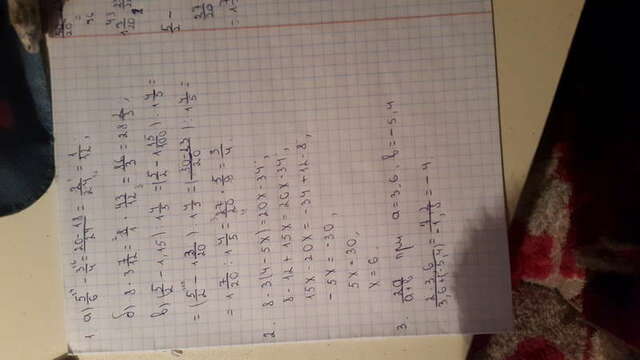 1. а) 5/6 - 3/4 = 20-18/24 = 2/24 = 1/12,
б) 8 · 3 7/12 = 8/1 · 43/12 = 86/3 = 28 2/3,
в) (5/2 - 1,15) : 1 4/5 = (5/2 - 1 15/100) : 1 4/5 =
= (5/2 - 1 3/20) : 1 4/5 = (50-23/20) : 1 4/5 =
= 1 7/20 : 1 4/5 = 27/20 · 5/9 = 3/4.
2. 8 - 3(4 - 5x) = 20x - 34;
8 - 12 + 15x = 20x - 34;
15x - 20x = -34 + 12 - 8,
- 5x = -30,
5x = 30,
x = 6.
3. 2a/a+b при a = 3,6, b = -5,4
2 · 3,6/3,6+(-5,4) = 7,2/-1,8 = -4